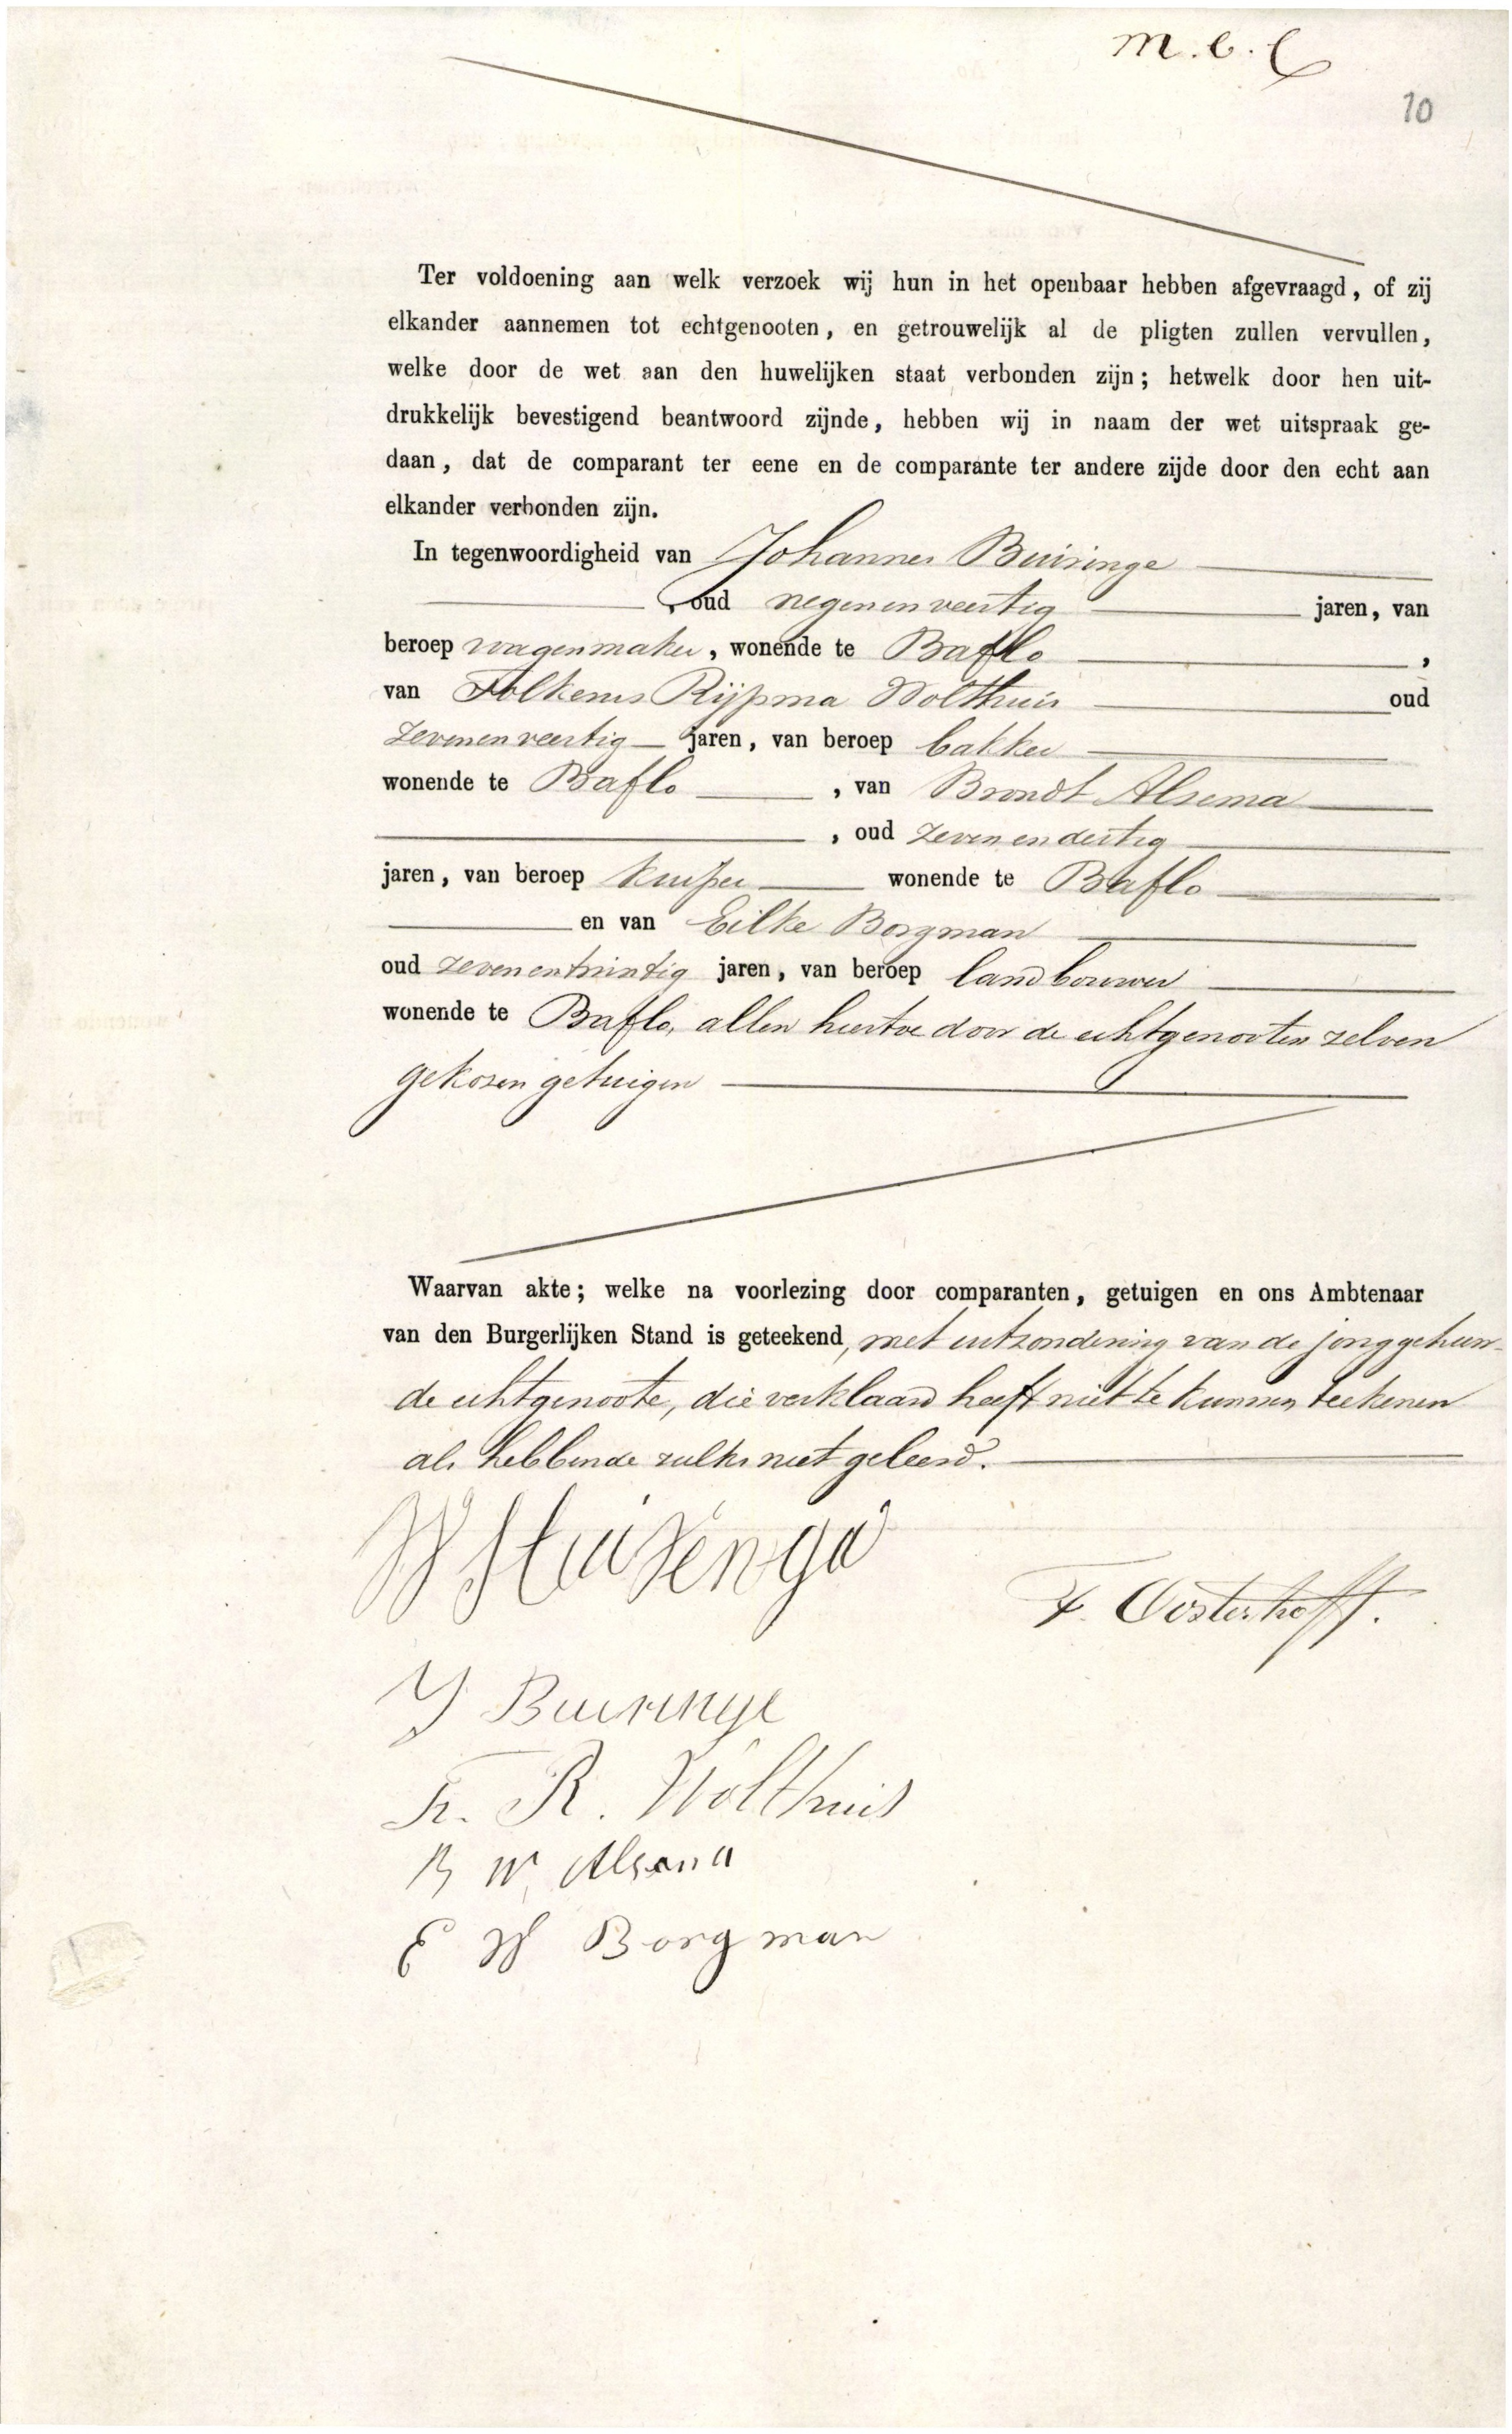 m. e. C
10
Ter voldoening aan welk verzoek wij hun in het openbaar hebben afgevraagd, of zij
elkander aannemen tot echtgenooten, en getrouwelijk al de pligten zullen vervullen,
welke door de wet aan den huwelijken staat verbonden zijn; hetwelk door hen uit-
drukkelijk bevestigend beantwoord zijnde, hebben wij in naam der wet uitspraak ge-
daan, dat de comparant ter eene en de comparante ter andere zijde door den echt aan
elkander verbonden zijn.
In tegenwoordigheid van Johannes Buiringe
, oud negenenveertig jaren, van
beroep wagenmaker, wonende te Baflo,
van Folkerus Rijpma Wolthuis oud
zevenenveertig jaren, van beroep bakker
wonende te Baflo, van Brondt Alsema
, oud zevenendertig
jaren, van beroep kuiper wonende te Baflo
en van Eilke Borgman
oud zevenentwintig jaren, van beroep landbouwer
wonende te Baflo, allen hiertoe door de echtgenooten zelven
gekozen getuigen
Waarvan akte; welke na voorlezing door comparanten, getuigen en ons Ambtenaar
van den Burgerlijken Stand is geteekend, met uitzondering van de jonggehuw-
de echtgenoote, die verklaard heeft niet te kunnen teekenen
als hebbende zulks niet geleerd.
W Huizenga
F. Oosterhoff.
J Buiringe
F. R. Wolthuis
B W Alsema
E W Borgman